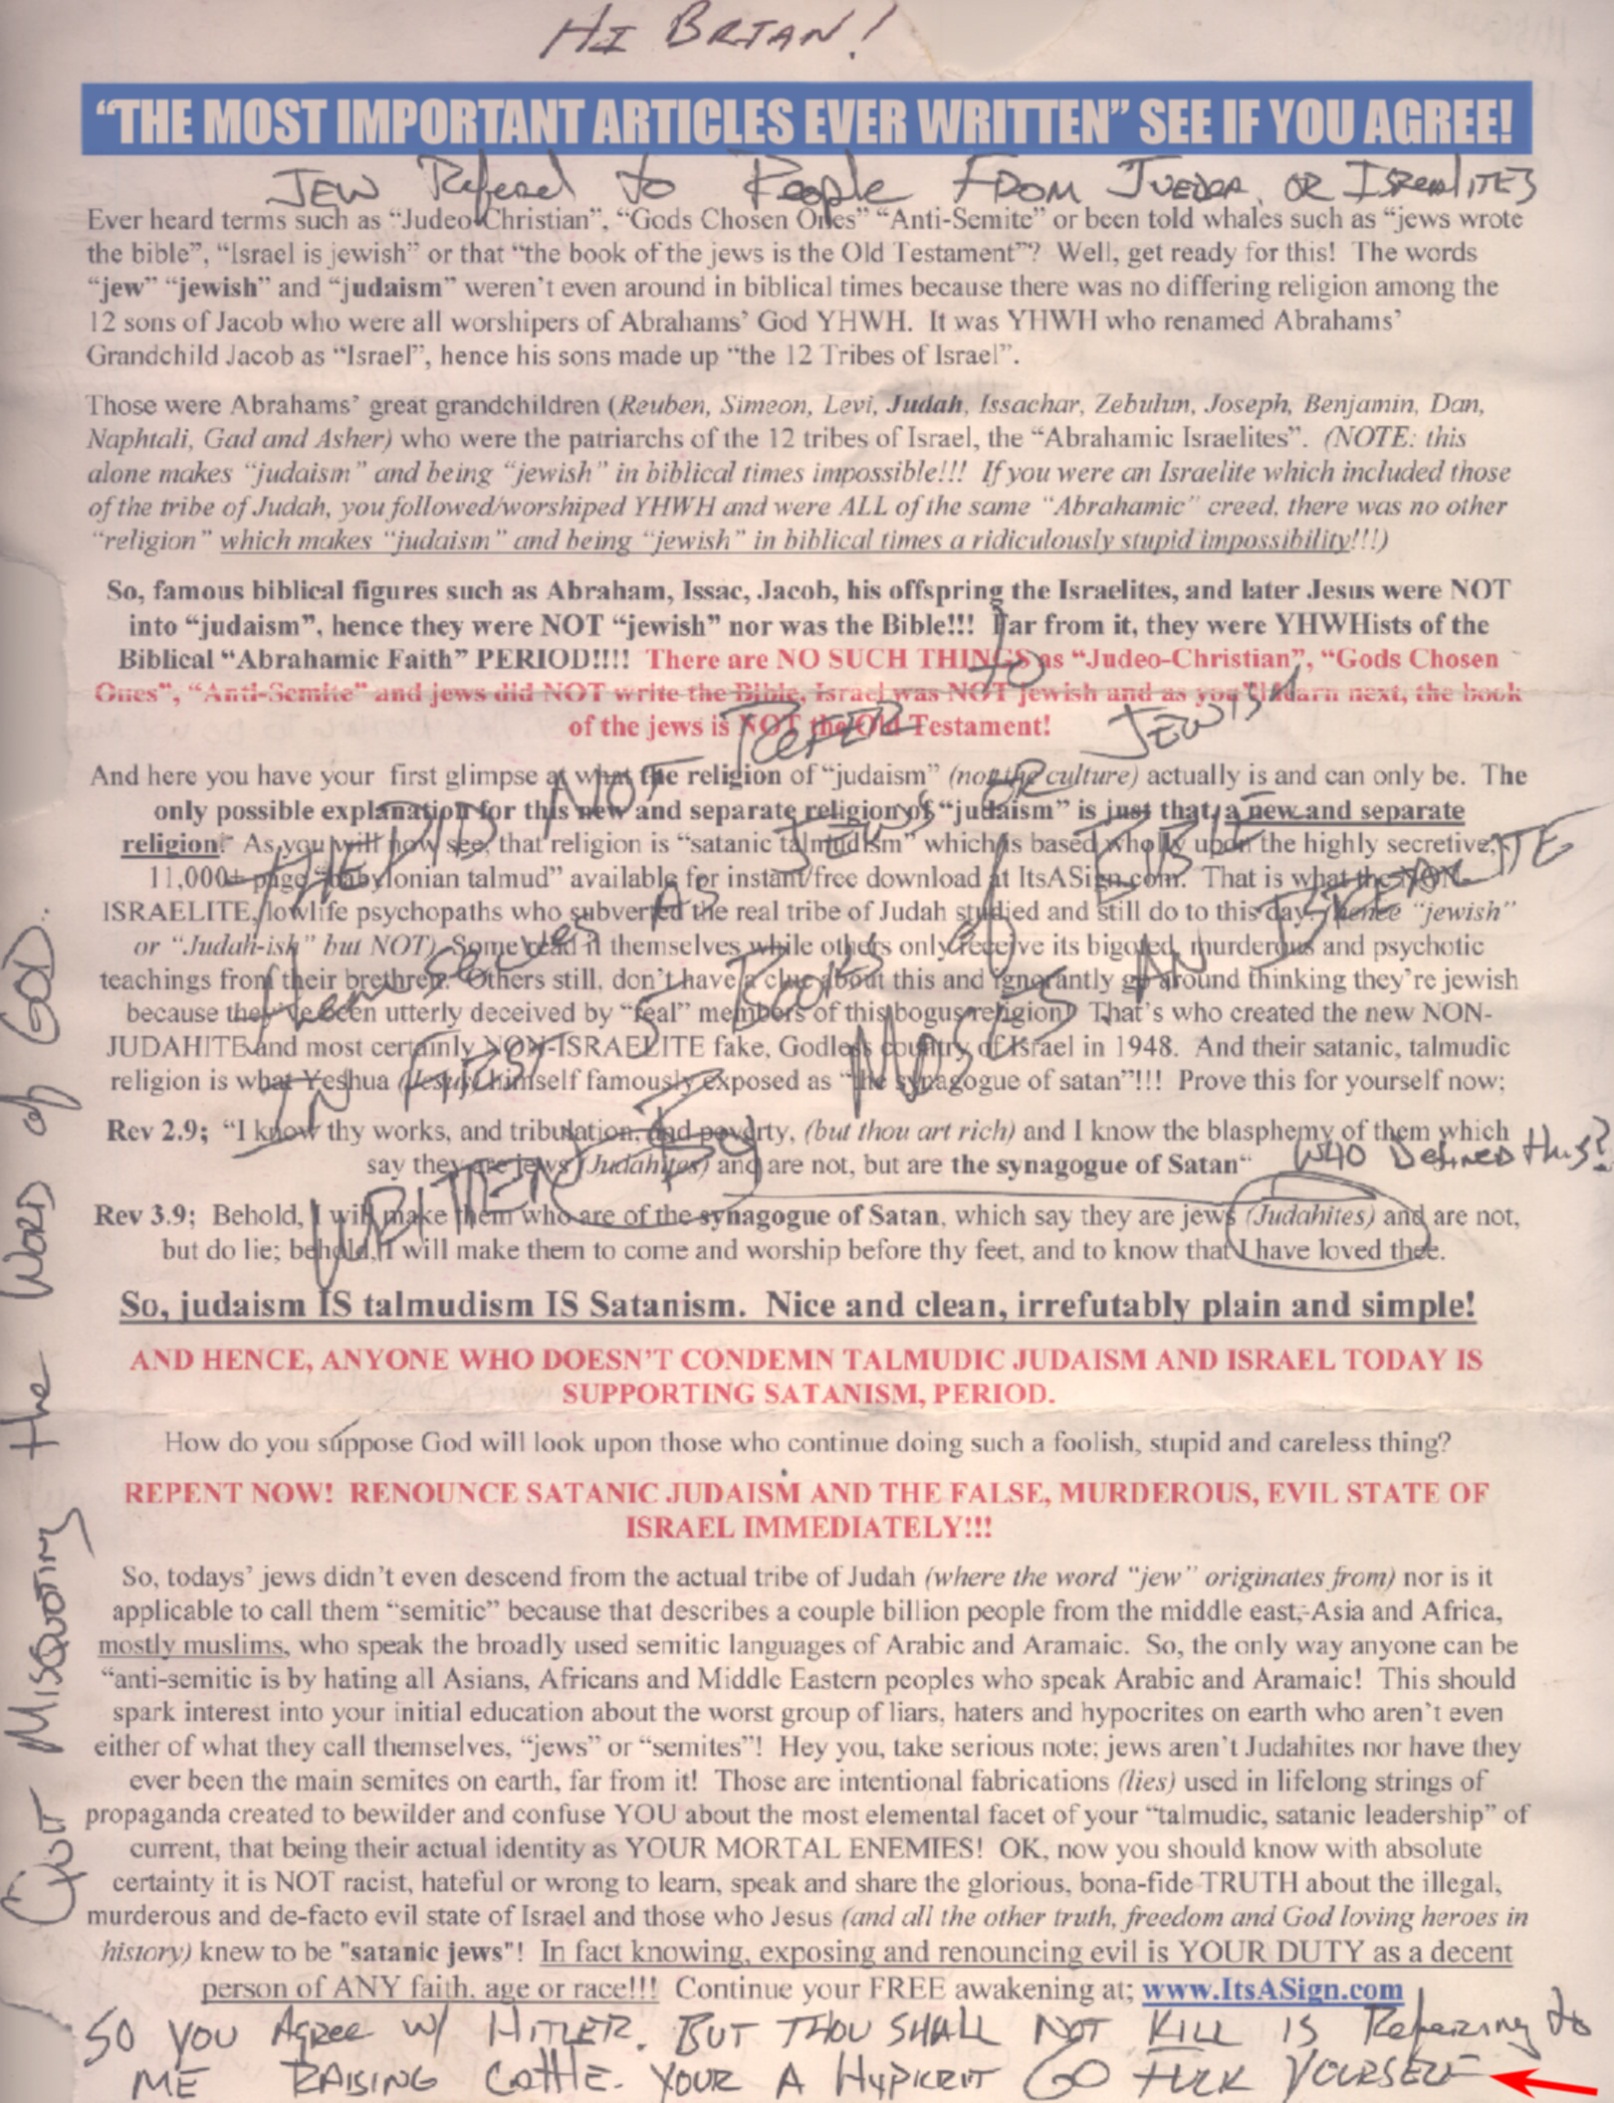 HI BRIAN!
“THE MOST IMPORTANT ARTICLES EVER WRITTEN” SEE IF YOU AGREE!
JEW Refered to People FROM JUEDDA, OR ISREALITES
Ever heard terms such as “Judeo-Christian”, “Gods Chosen Ones” “Anti-Semite” or been told whales such as “jews wrote
the bible”, “Israel is jewish” or that “the book of the jews is the Old Testament”? Well, get ready for this! The words
“jew” “jewish” and “judaism” weren’t even around in biblical times because there was no differing religion among the
12 sons of Jacob who were all worshipers of Abrahams’ God YHWH. It was YHWH who renamed Abrahams’
Grandchild Jacob as “Israel”, hence his sons made up “the 12 Tribes of Israel”.
Those were Abrahams’ great grandchildren (Reuben, Simeon, Levi, Judah, Issachar, Zebulun, Joseph, Benjamin, Dan,
Naphtali, Gad and Asher) who were the patriarchs of the 12 tribes of Israel, the “Abrahamic Israelites”. (NOTE: this
alone makes “judaism” and being “jewish” in biblical times impossible!!! If you were an Israelite which included those
of the tribe of Judah, you followed/worshiped YHWH and were ALL of the same “Abrahamic” creed, there was no other
“religion” which makes “judaism” and being “jewish” in biblical times a ridiculously stupid impossibility!!!)
So, famous biblical figures such as Abraham, Issac, Jacob, his offspring the Israelites, and later Jesus were NOT
into “judaism”, hence they were NOT “jewish” nor was the Bible!!! Far from it, they were YHWHists of the
Biblical “Abrahamic Faith” PERIOD!!!! There are NO SUCH THINGS as “Judeo-Christian”, “Gods Chosen
Ones”, “Anti-Semite” and jews did NOT write the Bible, Israel was NOT jewish and as you’ll learn next, the book
of the jews is NOT the Old Testament!
And here you have your first glimpse at what the religion of “judaism” (not the culture) actually is and can only be. The
only possible explanation for this new and separate religion of “judaism” is just that, a new and separate
religion! As you will now see, that religion is “satanic talmudism” which is based wholly upon the highly secretive,
11,000+ page “babylonian talmud” available for instant/free download at ItsASign.com. That is what the NON-
ISRAELITE, lowlife psychopaths who subverted the real tribe of Judah studied and still do to this day, (hence “jewish”
or “Judah-ish” but NOT). Some read it themselves while others only receive its bigoted, murderous and psychotic
teachings from their brethren. Others still, don’t have a clue about this and ignorantly go around thinking they’re jewish
because they’ve been utterly deceived by “real” members of this bogus religion! That’s who created the new NON-
JUDAHITE and most certainly NON-ISRAELITE fake, Godless country of Israel in 1948. And their satanic, talmudic
religion is what Yeshua (Jesus) himself famously exposed as “the synagogue of satan”!!! Prove this for yourself now;
THEY DID NOT REFER to
themselves AS JEWS OR JEWISH
IN FIRST 5 BOOKS of BIBLE
WRITTEN By MOSES AN ISREALITE
Rev 2.9; “I know thy works, and tribulation, and poverty, (but thou art rich) and I know the blasphemy of them which
say they are jews (Judahites) and are not, but are the synagogue of Satan“
WHO Defined this?
Rev 3.9; Behold, I will make them who are of the synagogue of Satan, which say they are jews (Judahites) and are not,
but do lie; behold, I will make them to come and worship before thy feet, and to know that I have loved thee.
So, judaism IS talmudism IS Satanism. Nice and clean, irrefutably plain and simple!
AND HENCE, ANYONE WHO DOESN’T CONDEMN TALMUDIC JUDAISM AND ISRAEL TODAY IS
SUPPORTING SATANISM, PERIOD.
How do you suppose God will look upon those who continue doing such a foolish, stupid and careless thing?
REPENT NOW! RENOUNCE SATANIC JUDAISM AND THE FALSE, MURDEROUS, EVIL STATE OF
ISRAEL IMMEDIATELY!!!
So, todays’ jews didn’t even descend from the actual tribe of Judah (where the word “jew” originates from) nor is it
applicable to call them “semitic” because that describes a couple billion people from the middle east, Asia and Africa,
mostly muslims, who speak the broadly used semitic languages of Arabic and Aramaic. So, the only way anyone can be
“anti-semitic is by hating all Asians, Africans and Middle Eastern peoples who speak Arabic and Aramaic! This should
spark interest into your initial education about the worst group of liars, haters and hypocrites on earth who aren’t even
either of what they call themselves, “jews” or “semites”! Hey you, take serious note; jews aren’t Judahites nor have they
ever been the main semites on earth, far from it! Those are intentional fabrications (lies) used in lifelong strings of
propaganda created to bewilder and confuse YOU about the most elemental facet of your “talmudic, satanic leadership” of
current, that being their actual identity as YOUR MORTAL ENEMIES! OK, now you should know with absolute
certainty it is NOT racist, hateful or wrong to learn, speak and share the glorious, bona-fide TRUTH about the illegal,
murderous and de-facto evil state of Israel and those who Jesus (and all the other truth, freedom and God loving heroes in
history) knew to be "satanic jews"! In fact knowing, exposing and renouncing evil is YOUR DUTY as a decent
person of ANY faith, age or race!!! Continue your FREE awakening at; www.ItsASign.com
QUIT MISQUOTING the WORD of GOD..
SO YOU AGREE W/ HITLER. BUT THOU SHALL NOT KILL IS Refering to
ME RAISING CATTLE. YOUR A HYPICRIT GO FUCK YOURSELF